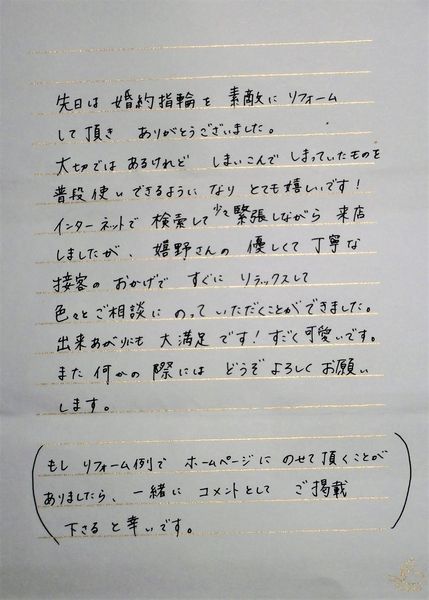 先日は 婚約指輪を 素敵に リフォーム
して頂き ありがとうございました。
大切では あるけれど しまいこんで しまっていたものを
普段使い できるように なり とても嬉しいです!
インターネットで 検索して 少々緊張しながら 来店
しましたが、嬉野さんの 優しくて 丁寧な
接客の おかげで すぐに リラックスして
色々と ご相談に のって いただくことが できました。
出来あがりにも 大満足です! すごく 可愛いです。
また 何かの 際には どうぞ よろしく お願い
します。
(もし リフォーム例で ホームページに のせて 頂くことが
ありましたら、一緒に コメントとして ご掲載
下さると 幸いです。)